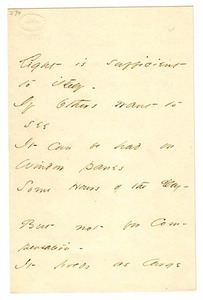 Light is sufficient
to itself -
If Others want to
see
It can be had on
Window Panes
Some Hours of the Day -
But not for Com-
pensation -
It holds as large